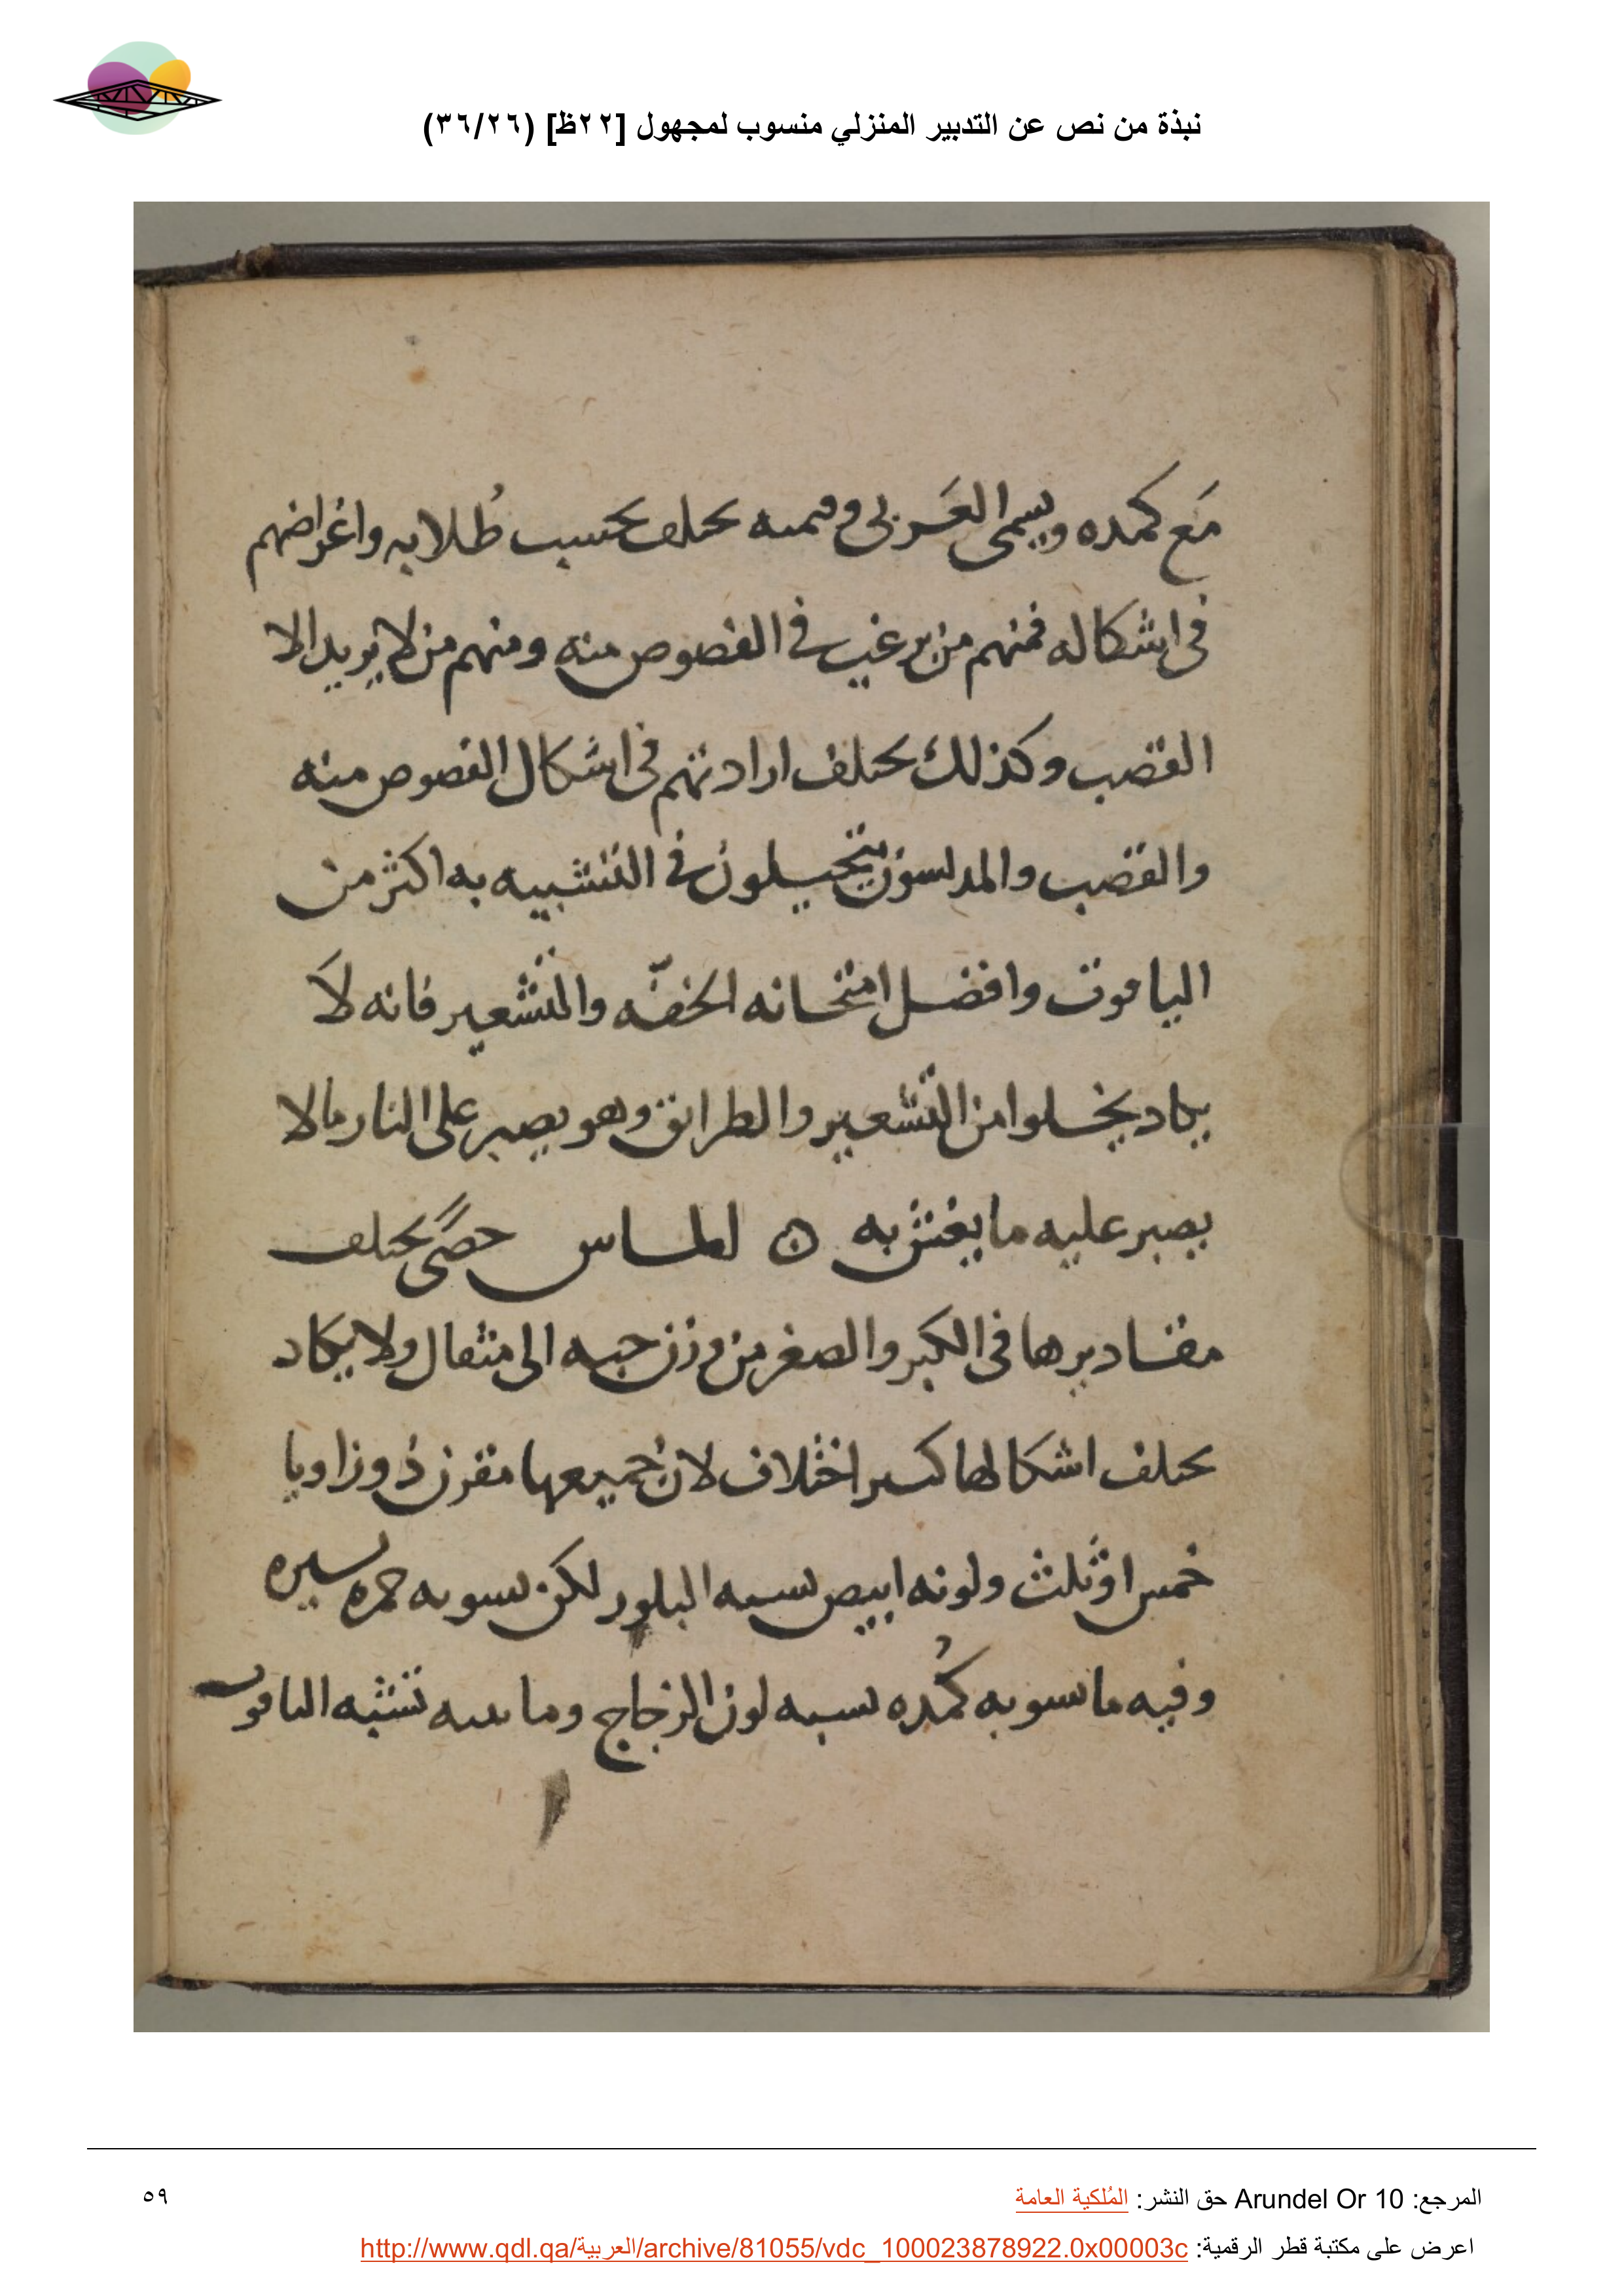 نبذة من نص عن التدبير المنزلي منسوب لمجهول [٢٢ظ] (٣٦/٢٦)
مَع كمده ويسمى العَربي وقيمته يختلف بحسب طُلابه واغراضهم
في اشكاله فمنهم من يرغب في الفصوص منه ومنهم من لا يريد الا
القصب وكذلك يختلف ارادتهم في اشكال الفصوص منه
والقصب والمدلسون يتحيلون في التشبيه به اكثر من
الياقوت وافضل امتحانه الخفّه والتشعير فانه لاَ
يكاد يخلوا من التشعير والطرائق وهو يصبر على النار مالا
يصبر عليه ما يغش به ۞ الماس حصًى يختلف
مقاديرها في الكبر والصغر من وزن حبه الى مثقال ولا يكاد
يختلف اشكالها كبير اختلاف لان جميعها مقرن ذو زاويا
خمس او ثلث ولونه ابيض يشبه البلور لكن يشوبه حمره يسيره
وفيه ما يشوبه كُمده يشبه لون الزجاج وما شبه تشبه الياقوت
المرجع: Arundel Or 10 حق النشر: المُلكية العامة
٥٩
اعرض على مكتبة قطر الرقمية: http://www.qdl.qa/العربية/archive/81055/vdc_100023878922.0x00003c